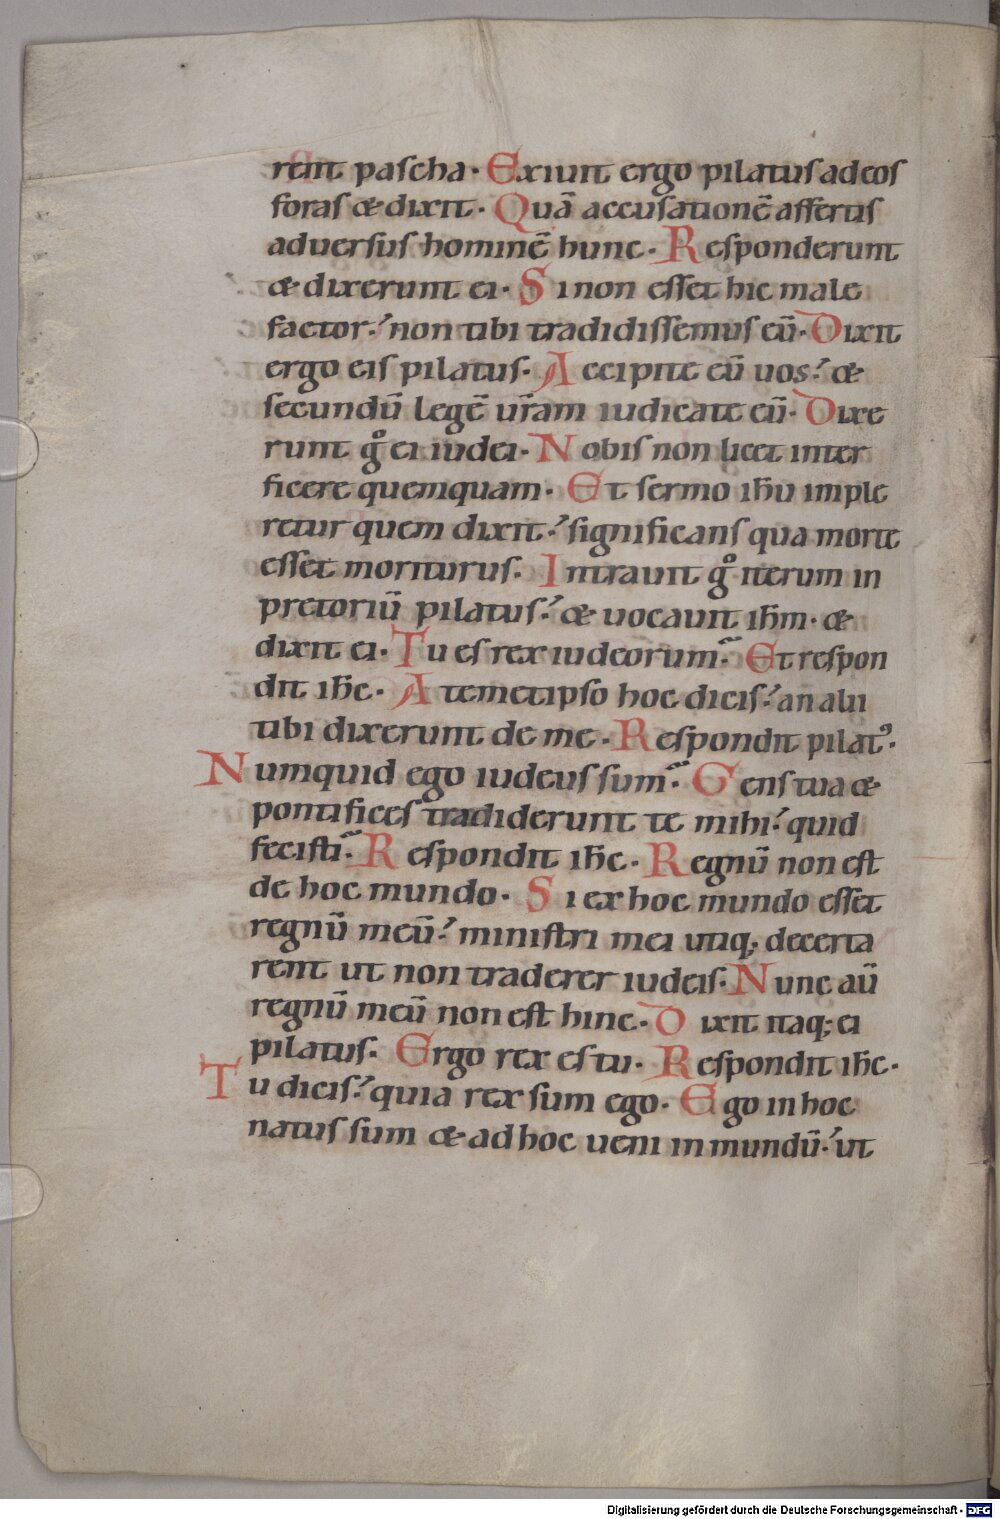 rent pascha. Exiuit ergo pilatus ad eos
foras & dixit. Quā accusationē affertis
aduersus hominē hunc. Responderunt
& dixerunt ei. Si non esset hic male
factor, non tibi tradidissemus eū. Dixit
ergo eis pilatus. Accipite eū uos, &
secundū legē ur̄am iudicate eū. Dixe
runt gͦ ei iudei. Nobis non licet inter
ficere quemquam. Et sermo ih̄u imple
retur quem dixit, significans qua morte
esset moriturus. Intrauit gͦ iterum in
pretoriū pilatus, & uocauit ih̄m. &
dixit ei. Tu es rex iudeorum? Et respon
dit ih̄c. A temetipso hoc dicis, an alii
tibi dixerunt de me. Respondit pilatꝰ.
Numquid ego iudeus sum? Gens tua &
pontifices tradiderunt te mihi, quid
fecisti? Respondit ih̄c. Regnū non est
de hoc mundo. Si ex hoc mundo esset
regnū meū, ministri mei utiq; decerta
rent ut non traderer iudeis. Nunc aū
regnū meū non est hinc. Dixit itaq; ei
pilatus. Ergo rex es tu. Respondit ih̄c.
Tu dicis, quia rex sum ego. Ego in hoc
natus sum & ad hoc ueni in mundū, ut
Digitalisierung gefördert durch die Deutsche Forschungsgemeinschaft - DFG